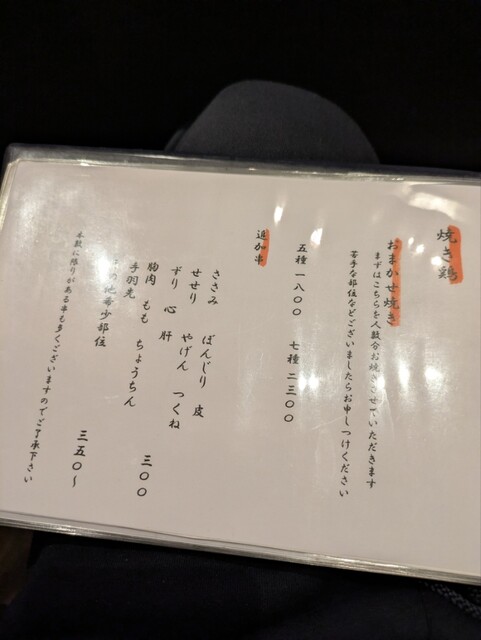 焼き鶏
おまかせ焼き
まずはこちらを人数分お焼きさせていただきます
苦手な部位などございましたらお申しつけください
五種 一八〇〇 七種 二三〇〇
追加串
ささみ ぼんじり 皮
せせり やげん つくね
ずり 心 肝
胸肉 もも ちょうちん
手羽先 三〇〇
の他希少部位 三五〇〜
本数に限りがある串も多くございますのでご了承下さい